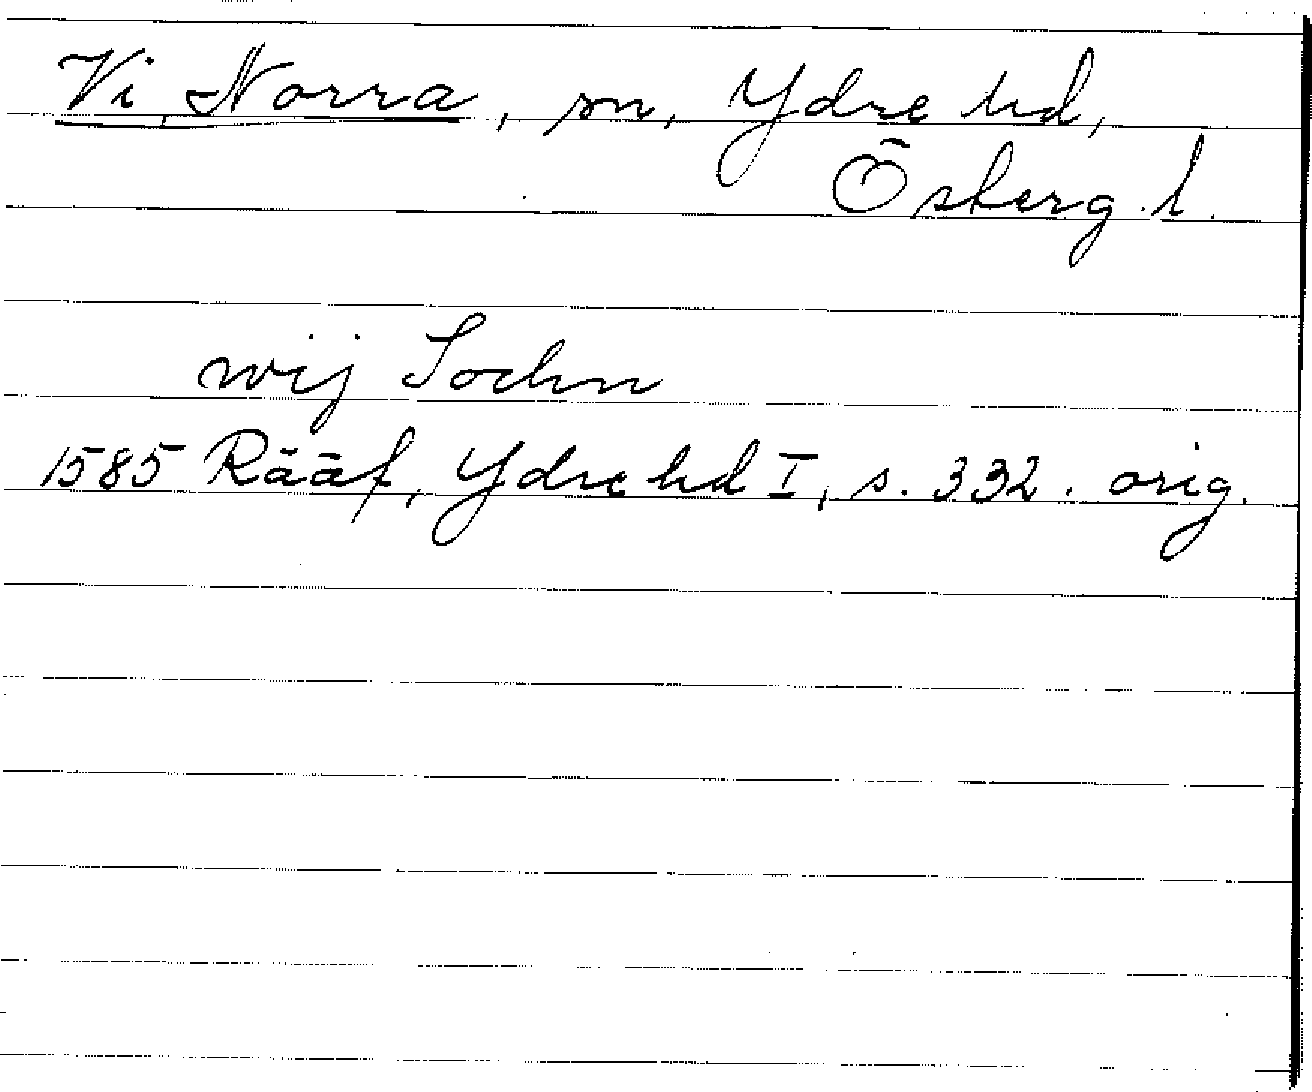 Vi Norra, sn, Ydre hd,
Östergl.
wij Sochn
1585 Rääf, Ydre hd I, s. 332. orig.